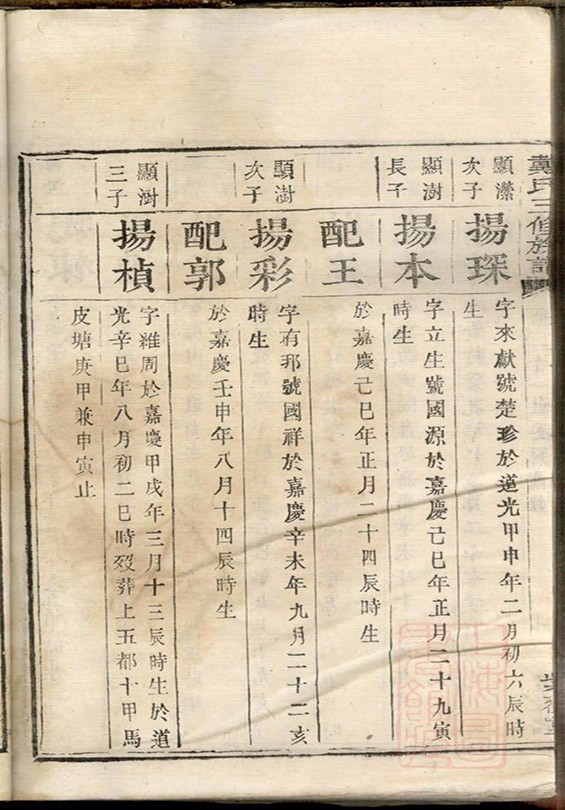 戴氏三修族譜
顯瀠
次子
揚琛
字來獻號楚珍於道光甲申年二月初六辰時
生
顯澍
長子
揚本
字立生號國源於嘉慶己巳年正月二十九寅
時生
配王
於嘉慶己巳年正月二十四辰時生
顯澍
次子
揚彩
字有邦號國祥於嘉慶辛未年九月二十二亥
時生
配郭
於嘉慶壬申年八月十四辰時生
顯澍
三子
揚楨
字維周於嘉慶甲戌年三月十三辰時生於道
光辛巳年八月初二巳時歿葬上五都十甲馬
皮塘庚甲兼申寅止